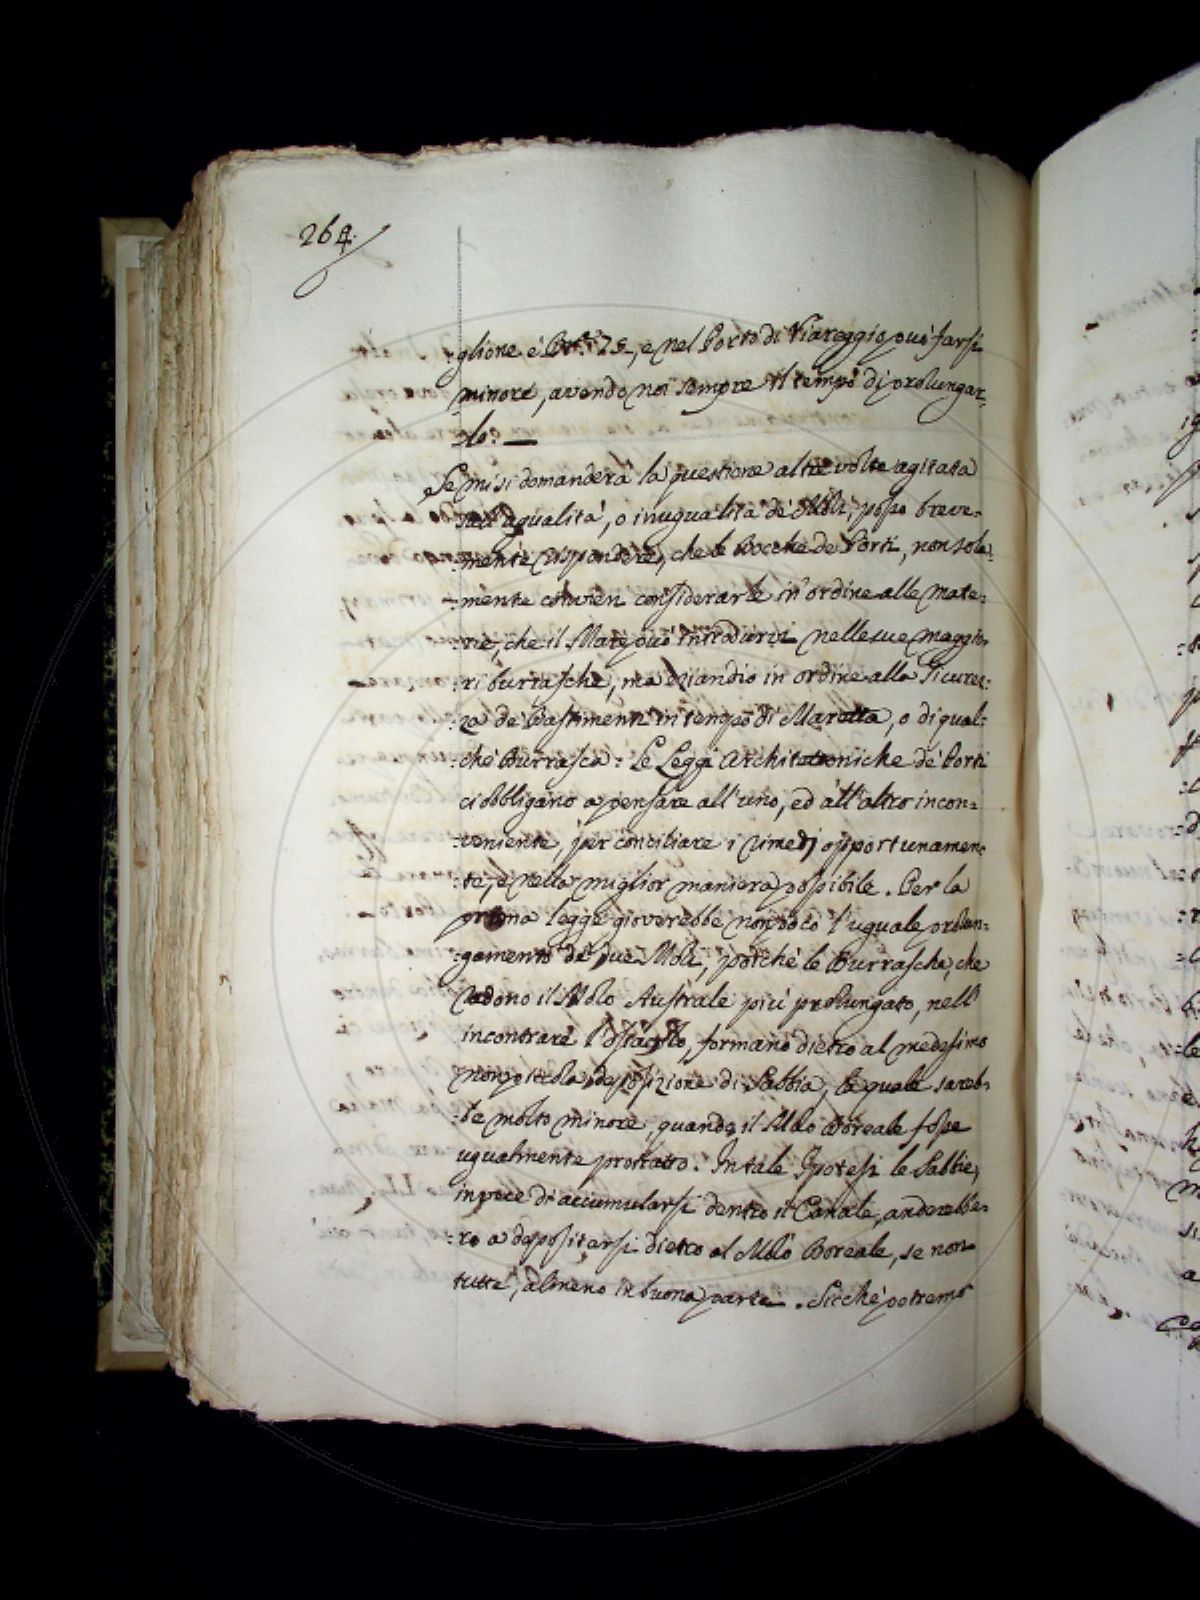 264.
glione è Bra: 25, e nel Porto di Viareggio può farsi
minore, avendo noi sempre il tempo di prolungar=
=lo: —
Se mi si domanderà la questione altre volte agitata
=sull'egualità, o inugualità de' Moli, posso breve=
=mente rispondere, che le Bocche de Porti, non sola=
=mente convien considerarle in ordine alle mate=
=rie, che il Mare può introdurvi nelle sue maggio=
=ri burrasche, ma eziandio in ordine alla Sicurez=
=za de' Bastimenti in tempo di Maretta, o di qual=
=che Burrasca: Le Leggi Architettoniche de' Porti
ci obbligano a pensare all'uno, ed all'altro incon=
=veniente, per conciliare i rimedj opportunamen=
=te, e nella miglior maniera possibile. Per la
prima legge gioverebbe non poco l'uguale prolun=
=gamento de' due Moli, poichè le Burrasche, che
radono il Molo Australe più prolungato, nell'
incontrare l'ostacolo, formano dietro al medesimo
non piccola deposizione di Sabbia, la quale sareb=
=be molto minore, quando il Molo Boreale fosse
ugualmente protratto. In tale Ipotesi le Sabbie,
in vece di accumularsi dentro il Canale, anderebbe=
=ro a depositarsi dietro al Molo Boreale, se non
tutte, almeno in buona parte. Sicchè potremo